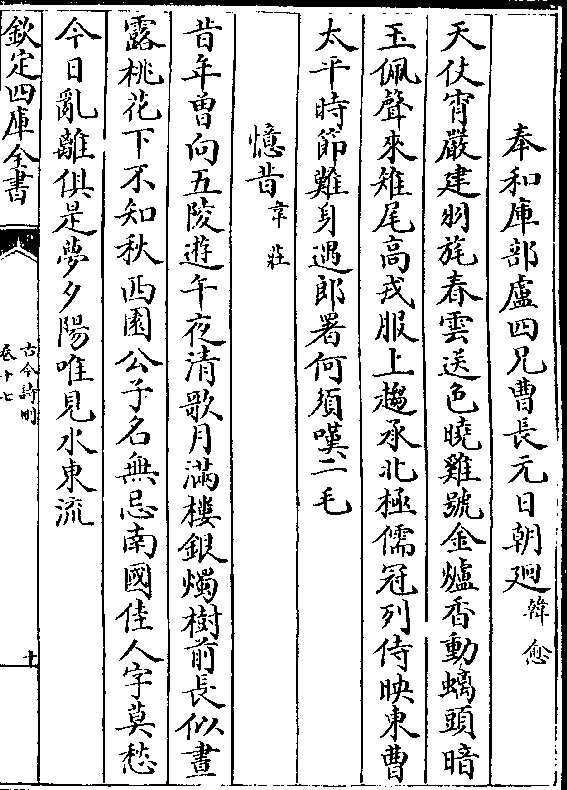 奉和庫部盧四兄曹長元日朝廻韓愈
天仗宵嚴建羽旄春雲送色曉雞號金爐香動螭頭暗
玉佩聲來雉尾高戎服上趨承北極儒冠列侍映東曹
太平時節難身遇郎署何須嘆二毛
憶昔韋莊
昔年曾向五陵遊午夜清歌月滿樓銀燭樹前長似晝
露桃花下不知秋西園公子名無忌南國佳人字莫愁
今日亂離俱是夢夕陽唯見水東流
欽定四庫全書
古今詩刪
卷十七
十